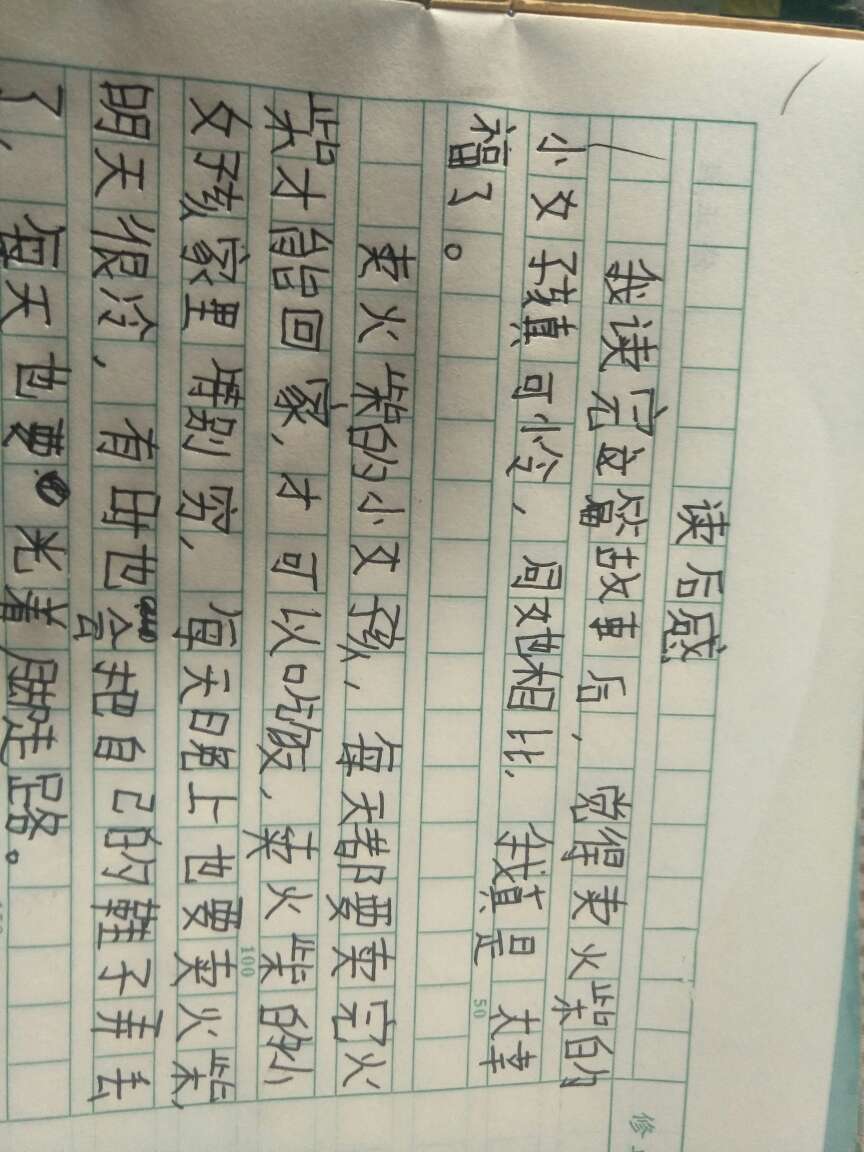 读后感
我读完这篇故事后，觉得卖火柴的
小女孩真可怜，同她相比，我真是太幸
福了。
卖火柴的小女孩，每天都要卖完火
柴才能回家，才可以吃饭，卖火柴的小
女孩家里特别穷，每天晚上也要卖火柴，
明天很冷，有时也会把自己的鞋子弄丢
了，每天也要光着脚走路。
50
100
修